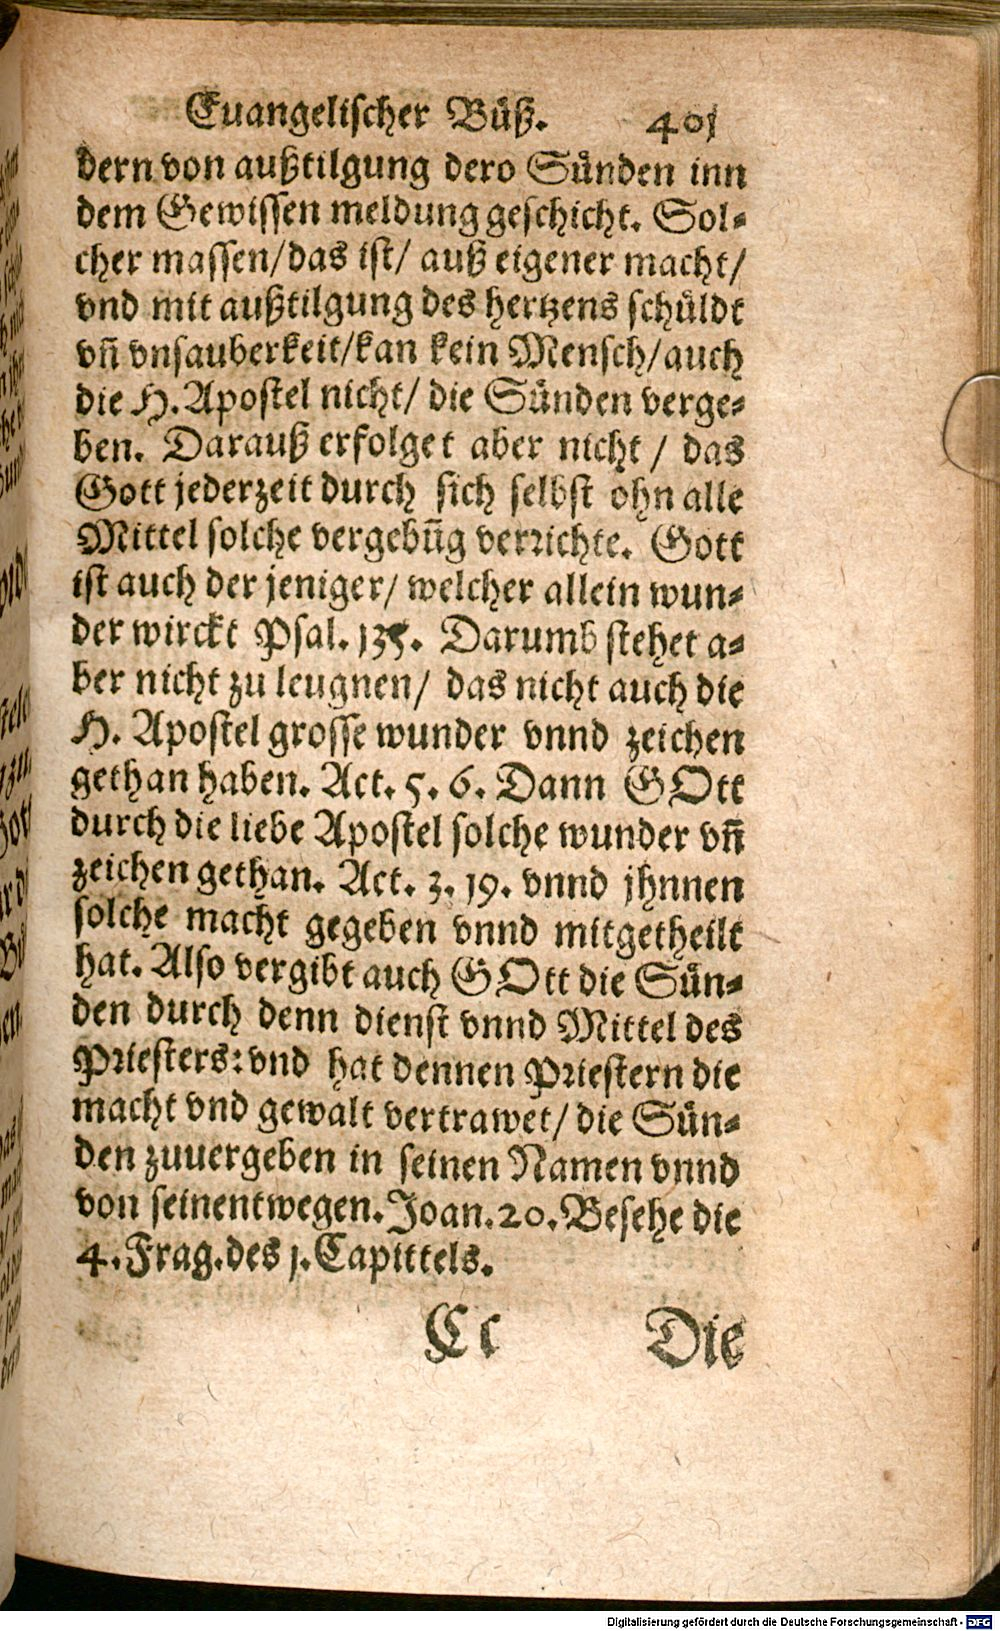 Euangelischer Büß. 401
dern von außtilgung dero Sünden inn
dem Gewissen meldung geschicht. Sol-
cher massen/das ist/ auß eigener macht/
vnd mit außtilgung des hertzens schüldt
vn̄ vnsauberkeit/kan kein Mensch/auch
die H. Apostel nicht/ die Sünden verge-
ben. Darauß erfolget aber nicht / das
Gott jederzeit durch sich selbst ohn alle
Mittel solche vergebūg verrichte. Gott
ist auch der jeniger/ welcher allein wun-
der wirckt Psal. 135. Darumb stehet a-
ber nicht zu leugnen/ das nicht auch die
H. Apostel grosse wunder vnnd zeichen
gethan haben. Act. 5. 6. Dann GOtt
durch die liebe Apostel solche wunder vn̄
zeichen gethan. Act. 3. 19. vnnd jhnnen
solche macht gegeben vnnd mitgetheilt
hat. Also vergibt auch GOtt die Sün-
den durch denn dienst vnnd Mittel des
Priesters: vnd hat dennen Priestern die
macht vnd gewalt vertrawet/ die Sün-
den zuuergeben in seinen Namen vnnd
von seinentwegen. Joan. 20. Besehe die
4. Frag. des 1. Capittels.
Cc Die
Digitalisierung gefördert durch die Deutsche Forschungsgemeinschaft - DFG